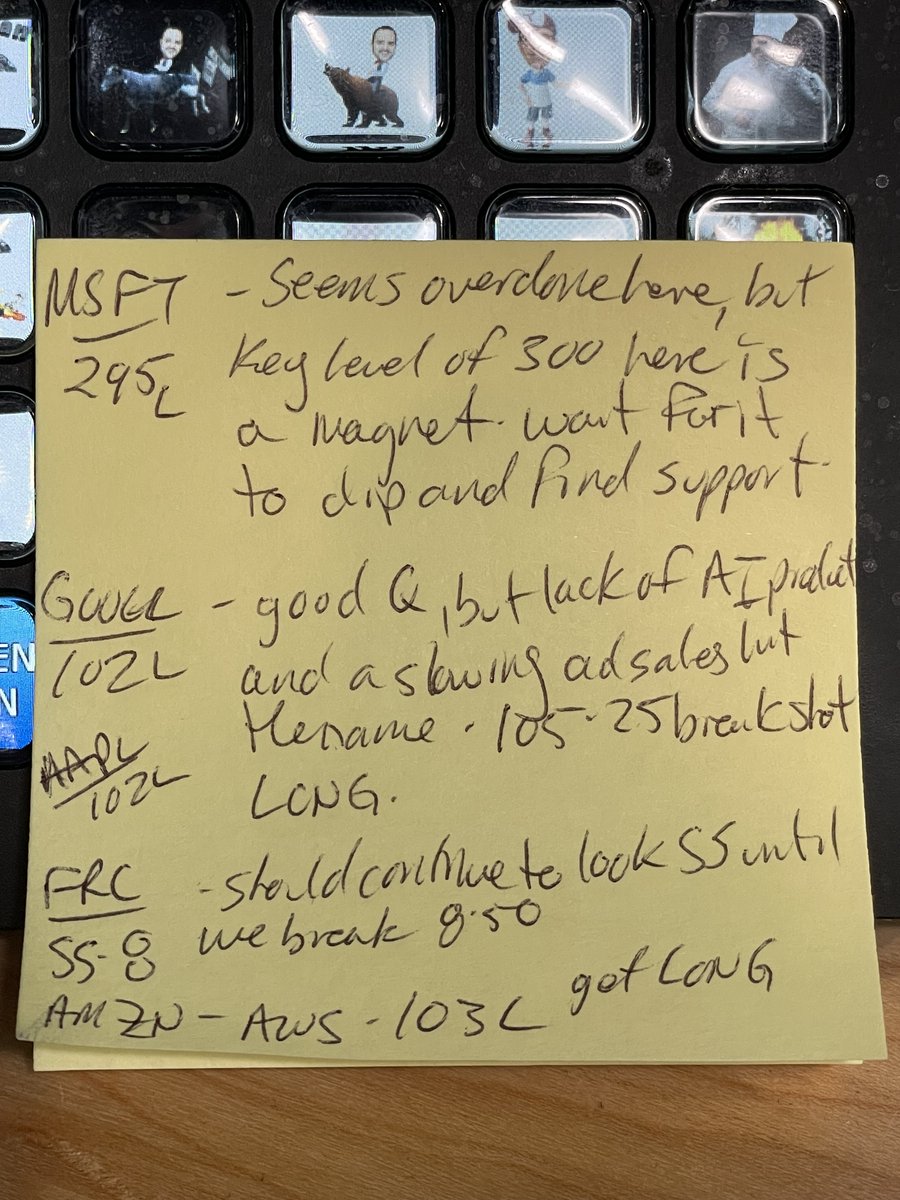 MSFT - Seems overdone here, but
295L Key level of 300 here is
a magnet. wait for it
to dip and find support.
GOOGL - good Q, but lack of AI product
102L and a slowing ad sales hut
the name. 105.25 break shot
AAPL
102L LONG.
FRC - should continue to look SS until
SS-8 we break 8.50
get LONG
AMZN - AWS - 103L
EN
N